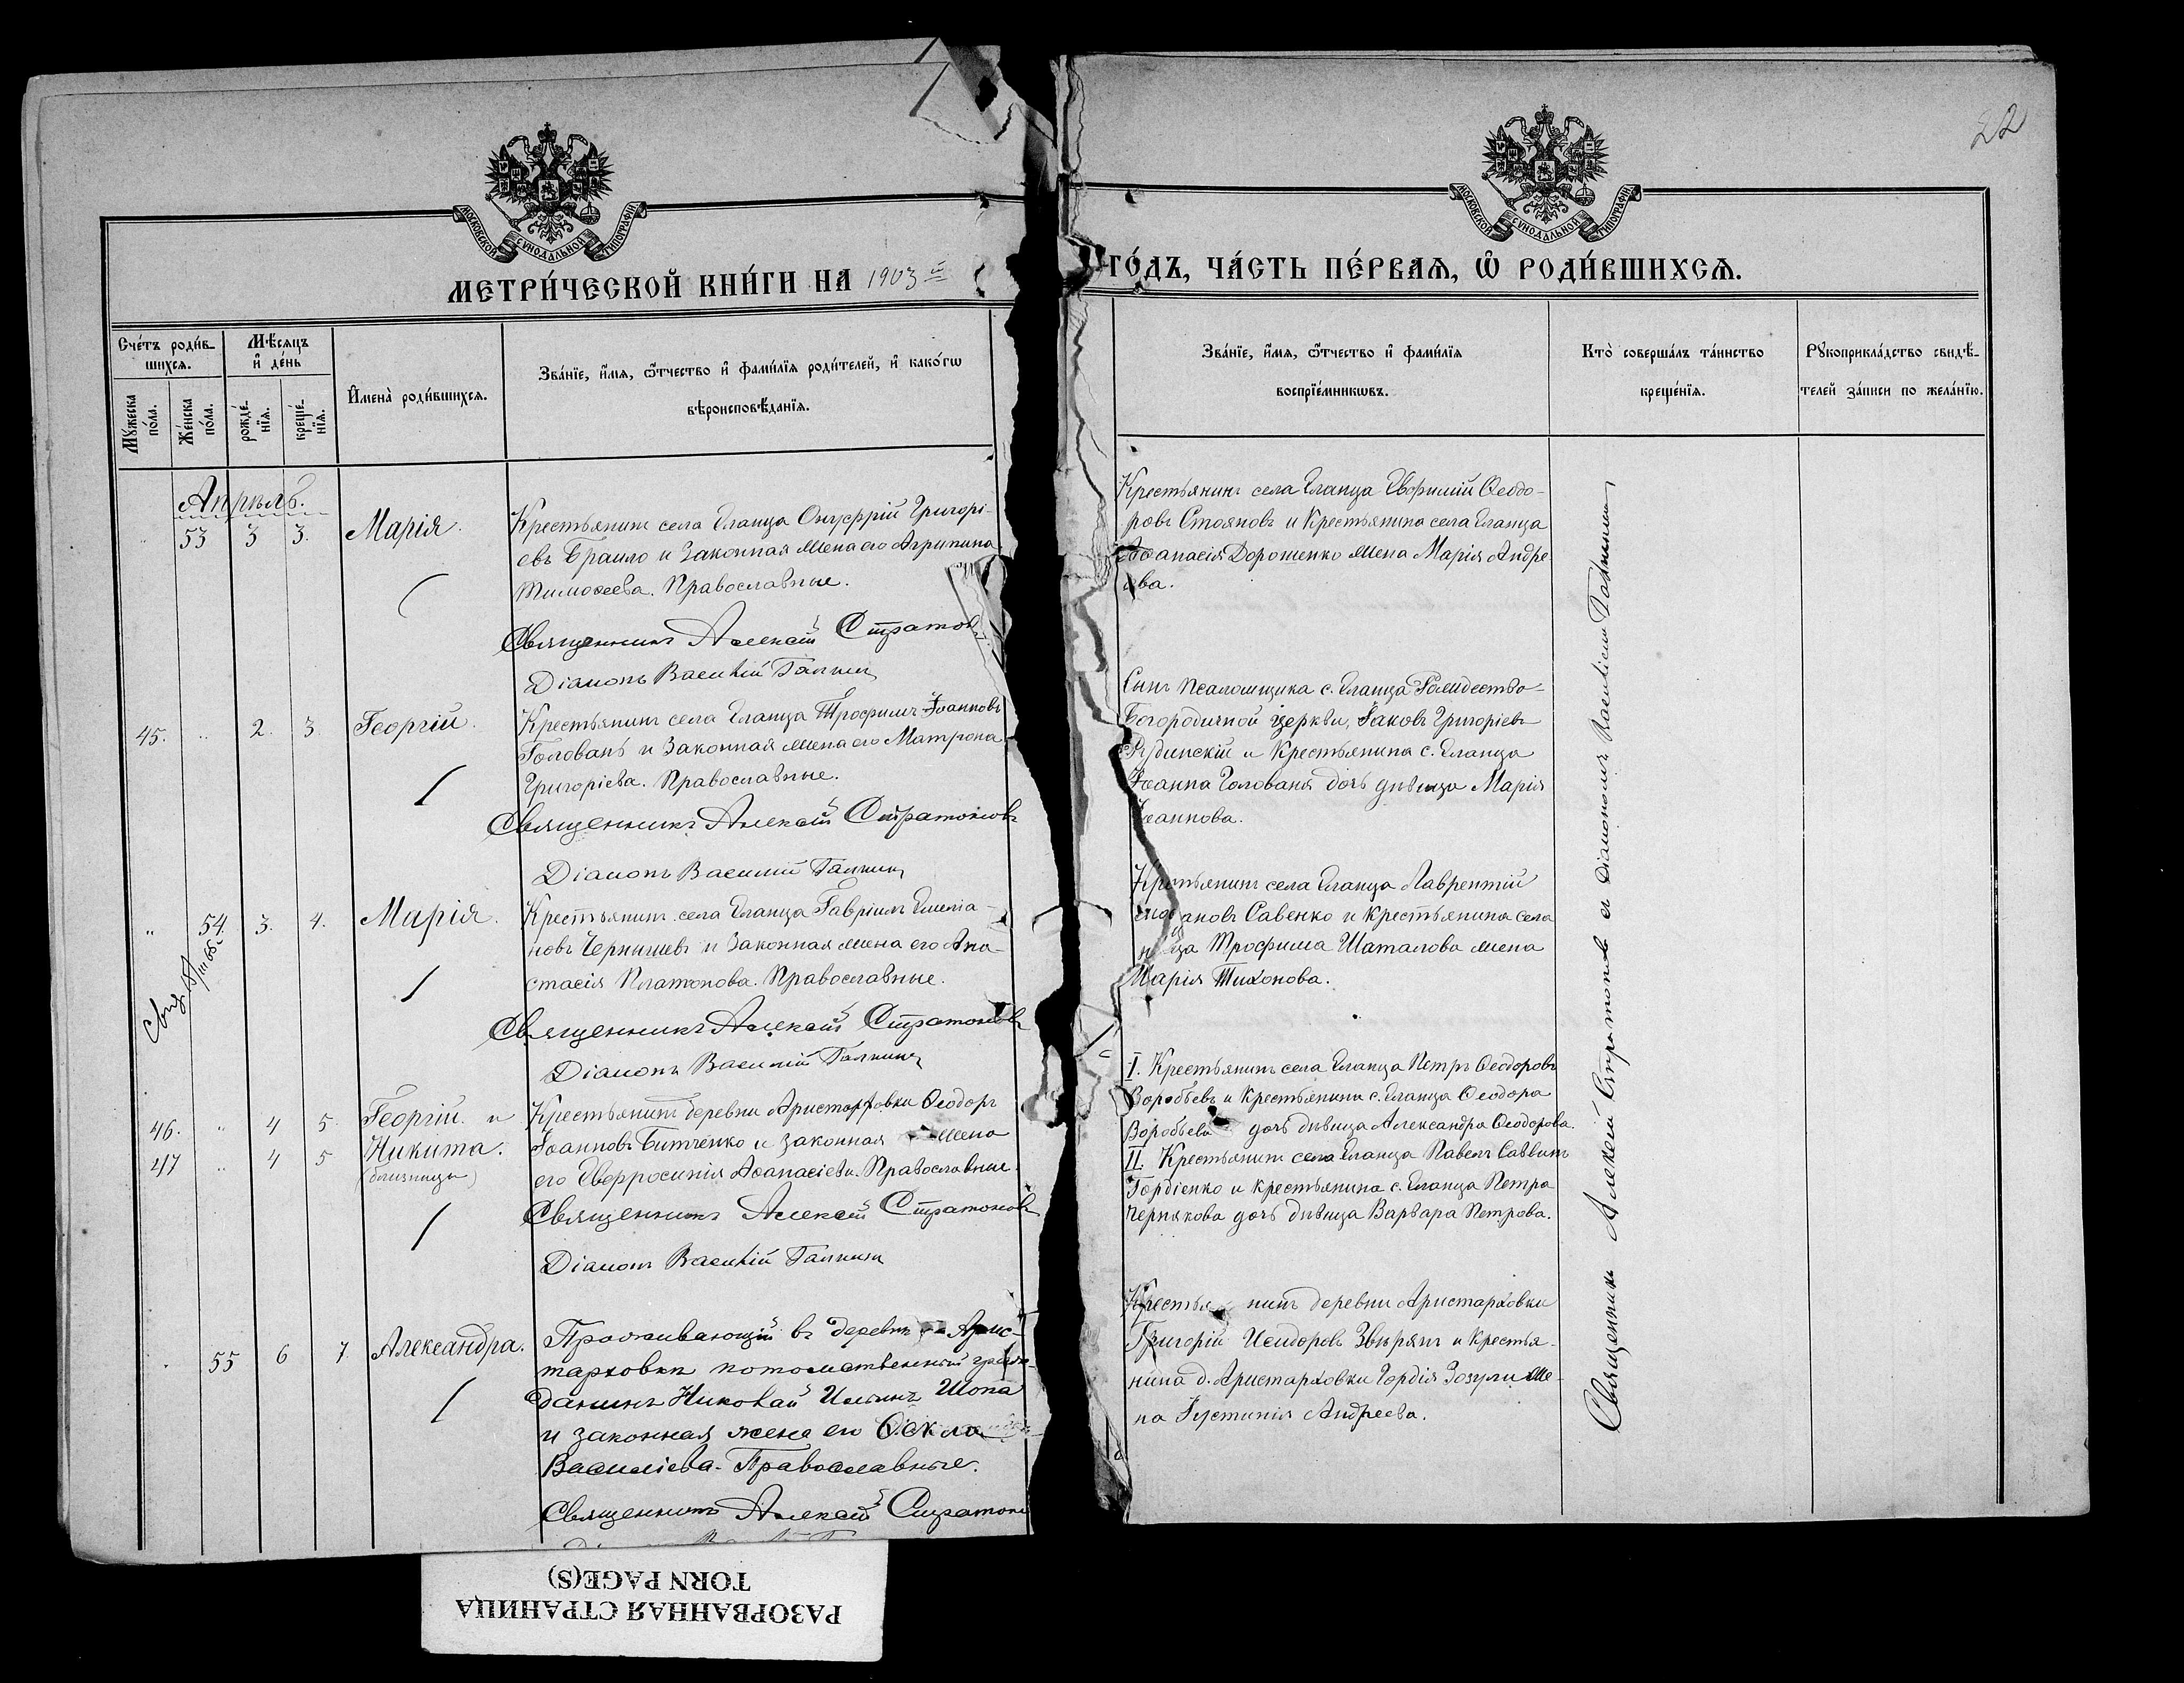 22
МОСКОВСКОЙ СѴНОДАЛЬНОЙ ТИПОГРАФІИ
МОСКОВСКОЙ СѴНОДАЛЬНОЙ ТИПОГРАФІИ
МЕТРИ́ЧЕСКОЙ КНИ́ГИ НА 1903 й
ГО́ДЪ, ЧА́СТЬ ПЕ́РВАѦ, Ѡ҆ РОДИ́ВШИХСѦ.
Сче́тъ роди́в-
шихсѧ.
Мѣ́сѧцъ
и҆ де́нь
И҆мена̀ роди́вшихсѧ.
Зва́нїе, и҆́мѧ, ѻ҆́тчество и҆ фами́лїѧ роди́телей, и҆ како́гѡ
вѣроисповѣ́данїѧ.
Мꙋ́жеска
по́ла.
Же́нска
по́ла.
рожде́-
нїѧ.
креще́-
нїѧ.
Зва́нїе, и҆́мѧ, ѻ҆́тчество и҆ фами́лїѧ
воспрїе́мникѡвъ.
Кто̀ соверша́лъ та́инство
креще́нїѧ.
Рꙋкоприкла́дство свидѣ́-
телей за́писи по жела́нїю.
Апрѣль.
53 3 3. Марія.
Крестьянинъ села Еланца Онуфрій Григорі-
евъ Браило и законная жена его Агрипина
Тимоѳеева. Православные.
Священникъ Алексій Стратон
Діаконъ Василій Галкинъ
Крестьянинъ села Еланца Евфимій Ѳеодо-
ровъ Стояновъ и крестьянина села Еланца
Аѳанасія Дорошенко жена Марія Андре
ева.
45. " 2. 3. Георгій.
Крестьянинъ села Еланца Трофимъ Іоанновъ
Голованъ и законная жена его Матрона
Григоріева. Православные.
Священникъ Алексій Стратоновъ
Діаконъ Василій Галкинъ
Сынъ псаломщика с. Еланца Рождество-
Богородичной церкви, Іаковъ Григоріевъ
Рудинскій и крестьянина с. Еланца
Іоанна Голованя дочь дѣвица Марія
Іоаннова.
" 54. 3. 4. Марія.
Крестьянинъ села Еланца Гавріилъ Емеліа-
новъ Чернышевъ и законная жена его Ана-
стасія Платонова. Православные.
Священникъ Алексій Стратоновъ
Діаконъ Василій Галкинъ
Крестьянинъ села Еланца Лаврентій
ановъ Савенко и крестьянина села
ца Трофима Шаталова жена
Марія Тихонова.
46. " 4 5. Георгій и
47 " 4 5 Никита.
(близнецы)
Крестьянинъ деревни Аристарховки Ѳеодоръ
Іоанновъ Битченко и законная жена
его Евфросинія Аѳанасіева. Православные.
Священникъ Алексій Стратоновъ
Діаконъ Василій Галкинъ
I. Крестьянинъ села Еланца Петръ Ѳеодоровъ
Воробьевъ и крестьянина с. Еланца Ѳеодора
Воробьева дочь дѣвица Александра Ѳеодорова.
II. Крестьянинъ села Еланца Павелъ Саввинъ
Гордіенко и крестьянина с. Еланца Петра
Чернякова дочь дѣвица Варвара Петрова.
55 6 7 Александра.
Проживающій въ деревнѣ Арис-
тарховки потомственный граж-
данинъ Николай Ильинъ Шопа
и законная жена его Ѳекла
Василіева. Православные.
Священникъ Алексій Стратон
Крестья нинъ деревни Аристарховки
Григорій Исидоровъ Звѣрянъ и крестья-
нина д. Аристарховки Гордія Зозули же-
на Іустинія Андреева.
Священникъ Алексій Стратоновъ съ Діакономъ Василіемъ Галкинымъ
РАЗОРВАННАЯ СТРАНИЦА
TORN PAGE(S)